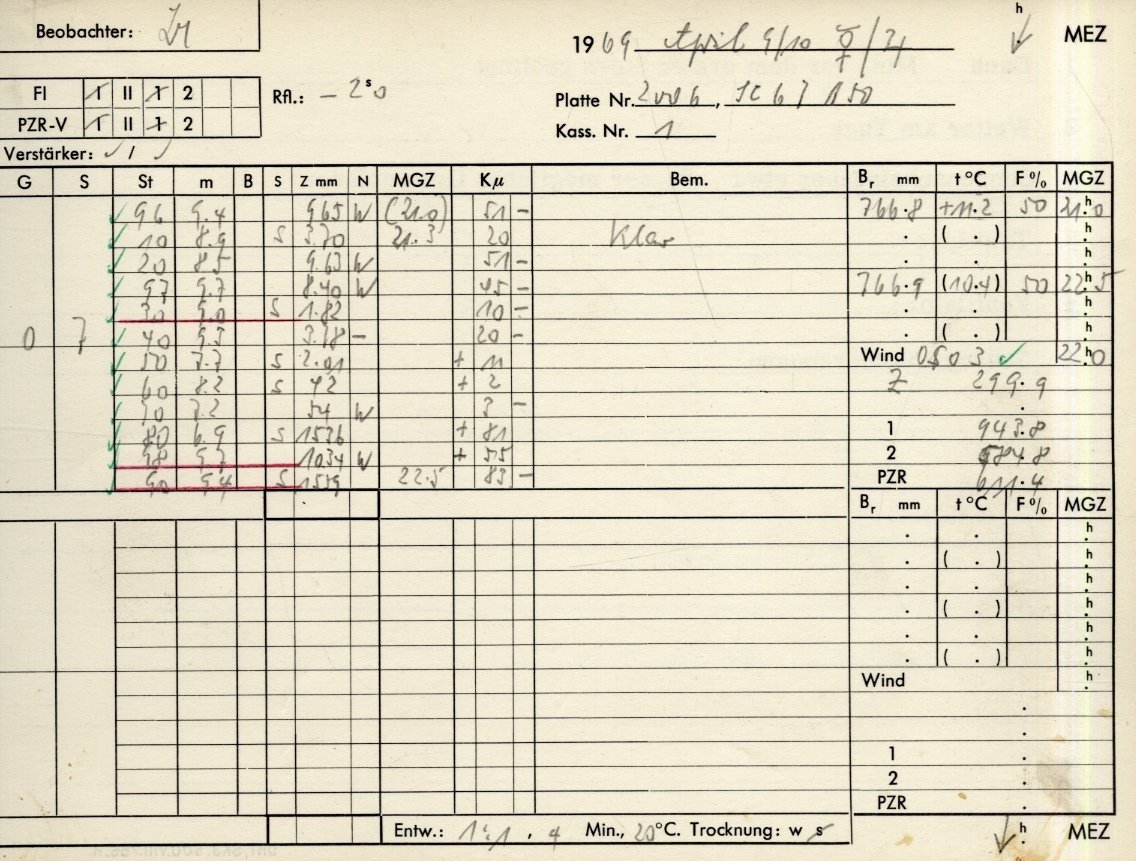 Beobachter:
1969 April 9/10 ☿/♃ h MEZ
FI 1 II 1 2
PZR-V 1 II 1 2
Rfl.: – 2ˢ0
Platte Nr. 2006, SC67 150
Kass. Nr. 1
Verstärker: 1
G S St m B S Z mm N MGZ Kμ Bem. Br mm t°C F% MGZ
96 9.4 965 W (21.0) 51 – 766.8 +11.2 50 21.0
10 8.9 S 3.70 21.3 20 Klar . ( . ) h
20 8.5 9.63 W 51 – . . h
97 9.7 8.40 W 45 – 766.9 (10.4) 50 22.5
30 9.0 S 1.82 10 – . . h
0 7 40 9.3 3.78 – 20 – . ( . ) h
50 7.7 S 2.01 + 11 Wind 0503 ✓ 22.0
60 8.2 S 42 + 2 Z 299.9
70 7.2 54 W 3 –
80 6.9 S 1536 + 81 1 943.8
98 9.7 1034 W + 55 2 584.8
90 9.4 S 1559 22.5 83 – PZR 611.4
Br mm t°C F% MGZ
. . h
. ( . ) h
. . h
. ( . ) h
. . h
. ( . ) h
Wind h
1 .
2 .
PZR .
Entw.: 1:1, 4 Min., 20°C. Trocknung: w s h MEZ